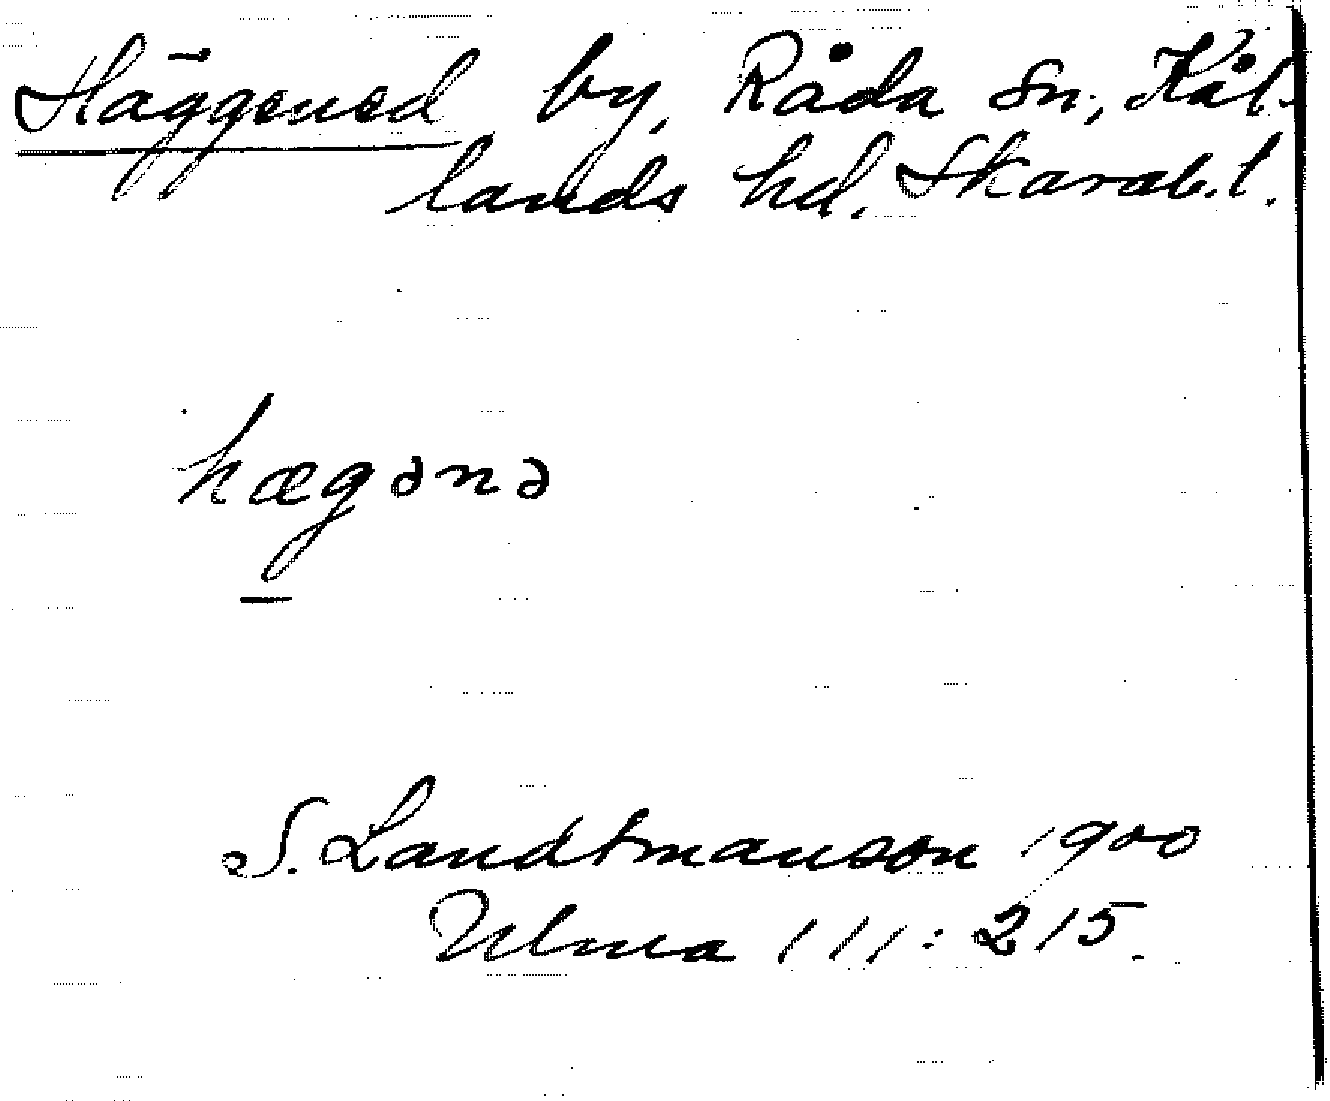 Häggened by, Råda sn, Kål-
lands hd. Skarab.l.
hægənə
S. Landtmanson 1900
Ulma 111:215.